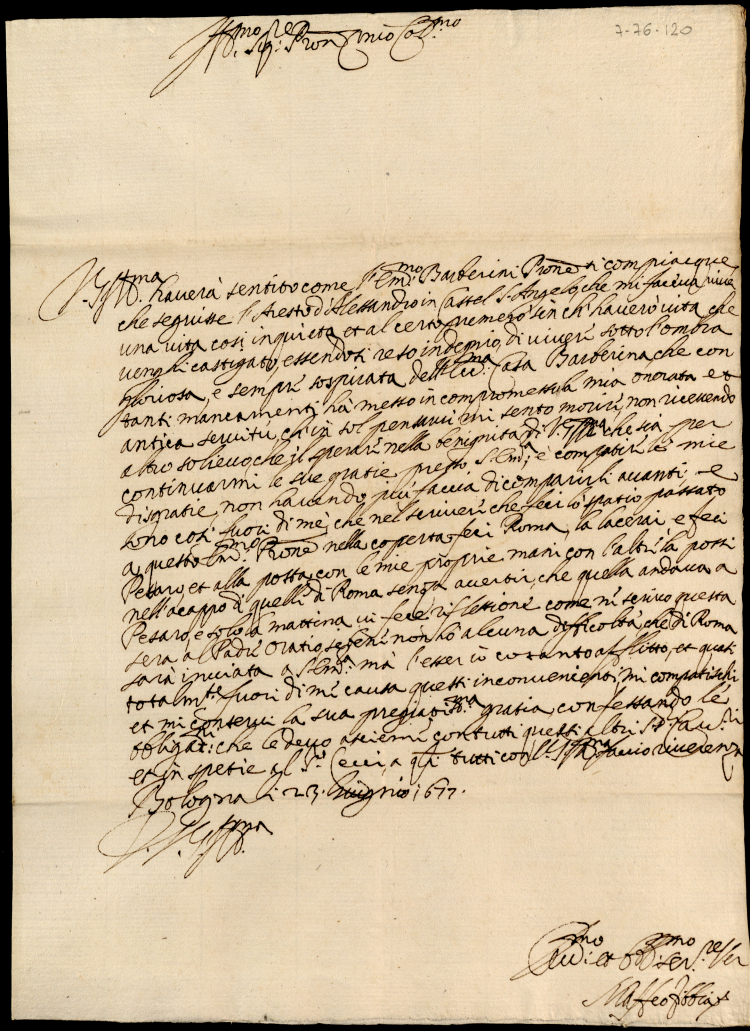 7-76-120
Ill.mo Sig.re Pron mio Col.mo
V.S. Ill.ma haverà sentito come l'Em.mo Barberini Prone si compiacque
che seguisse l'Aresto d'Alessandro in Castel S. Angelo che mi faceva vivere
una vita così inquieta et al certo premerò sin ch'haverò vita che
venghi castigato, essendosi reso indegnio, di vivere sotto l'ombra
gloriosa, e sempre sospirata dell'Ecc.ma Casa Barberina che con
tanti mancamenti hà messo in compromesso la mia onorata et
antica servitù, ch'in sol pensarvi mi sento morire non ricevendo
altro solievo, che il sperare nella benignità di V.S. Ill.ma che sia per
continuarmi le sue gratie presso S. Em.a e compatire le mie
disgratie non havendo più faccia di comparirli avanti e
sono così fuori di mè, che nel scrivere che feci lo spatio passato
a questo Em.mo Prone nella coperta feci Roma, la lacerai e feci
Pesaro, et alla posta con le mie proprie mani con l'altre la posti
nell'acappo di quelle di Roma senza avertir, che quella andava a
Pesaro, e solo la mattina vi feci riflesione come ne scrivo questa
sera al Padre Oratio, se bene non hò alcuna difficoltà, che di Roma
sarà inviata a S. Em.a mà l'esser io cotanto afflitto, et quasi
totalm.te fuori di me causa questi inconvenienti, mi compatischi
et mi conservi la sua pregiatis.ma gratia confessando le
obligat.ni che le devo assiemi con tutti questi altri SS.ri
et in spetie al S.r Cecci, a q.li tutti con V.S. Ill.ma faccio riverenza
Bologna li 23. 1677.
D. V.S. Ill.ma
Dev.mo et Obb.mo Ser.re
Maffeo